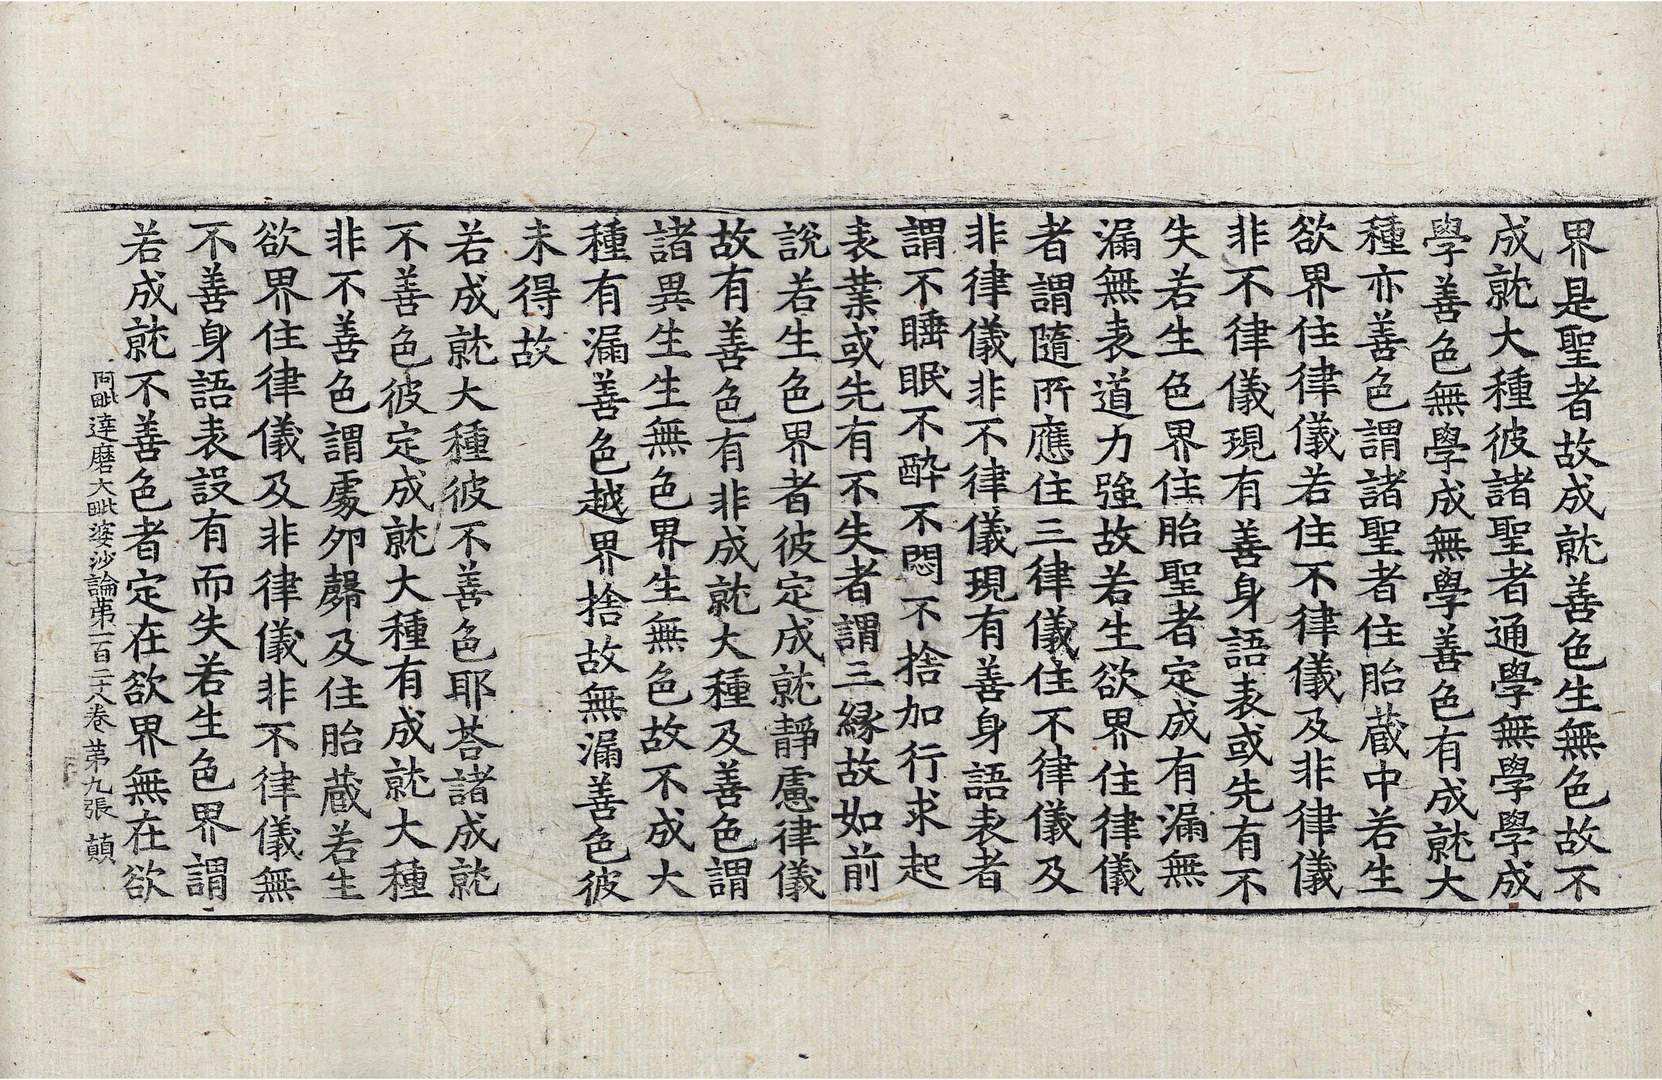 界是聖者故成就善色生無色故不
成就大種彼諸聖者通學無學學成
學善色無學成無學善色有成就大
種亦善色謂諸聖者住胎蔵中若生
欲界住律儀若住不律儀及非律儀
非不律儀現有善身語表或先有不
失若生色界住胎聖者定成有漏無
漏無表道力強故若生欲界住律儀
者謂隨所應住三律儀住不律儀及
非律儀非不律儀現有善身語表者
謂不睡眠不酔不悶不捨加行求起
表業或先有不失者謂三縁故如前
說若生色界者彼定成就靜慮律儀
故有善色有非成就大種及善色謂
諸異生生無色界生無色故不成大
種有漏善色越界捨故無漏善色彼
未得故
若成就大種彼不善色耶荅諸成就
不善色彼定成就大種有成就大種
非不善色謂處卵㲉及住胎蔵若生
欲界住律儀及非律儀非不律儀無
不善身語表設有而失若生色界謂
若成就不善色者定在欲界無在欲
阿毗達磨大毗婆沙論第一百三十八卷 第九張 顛